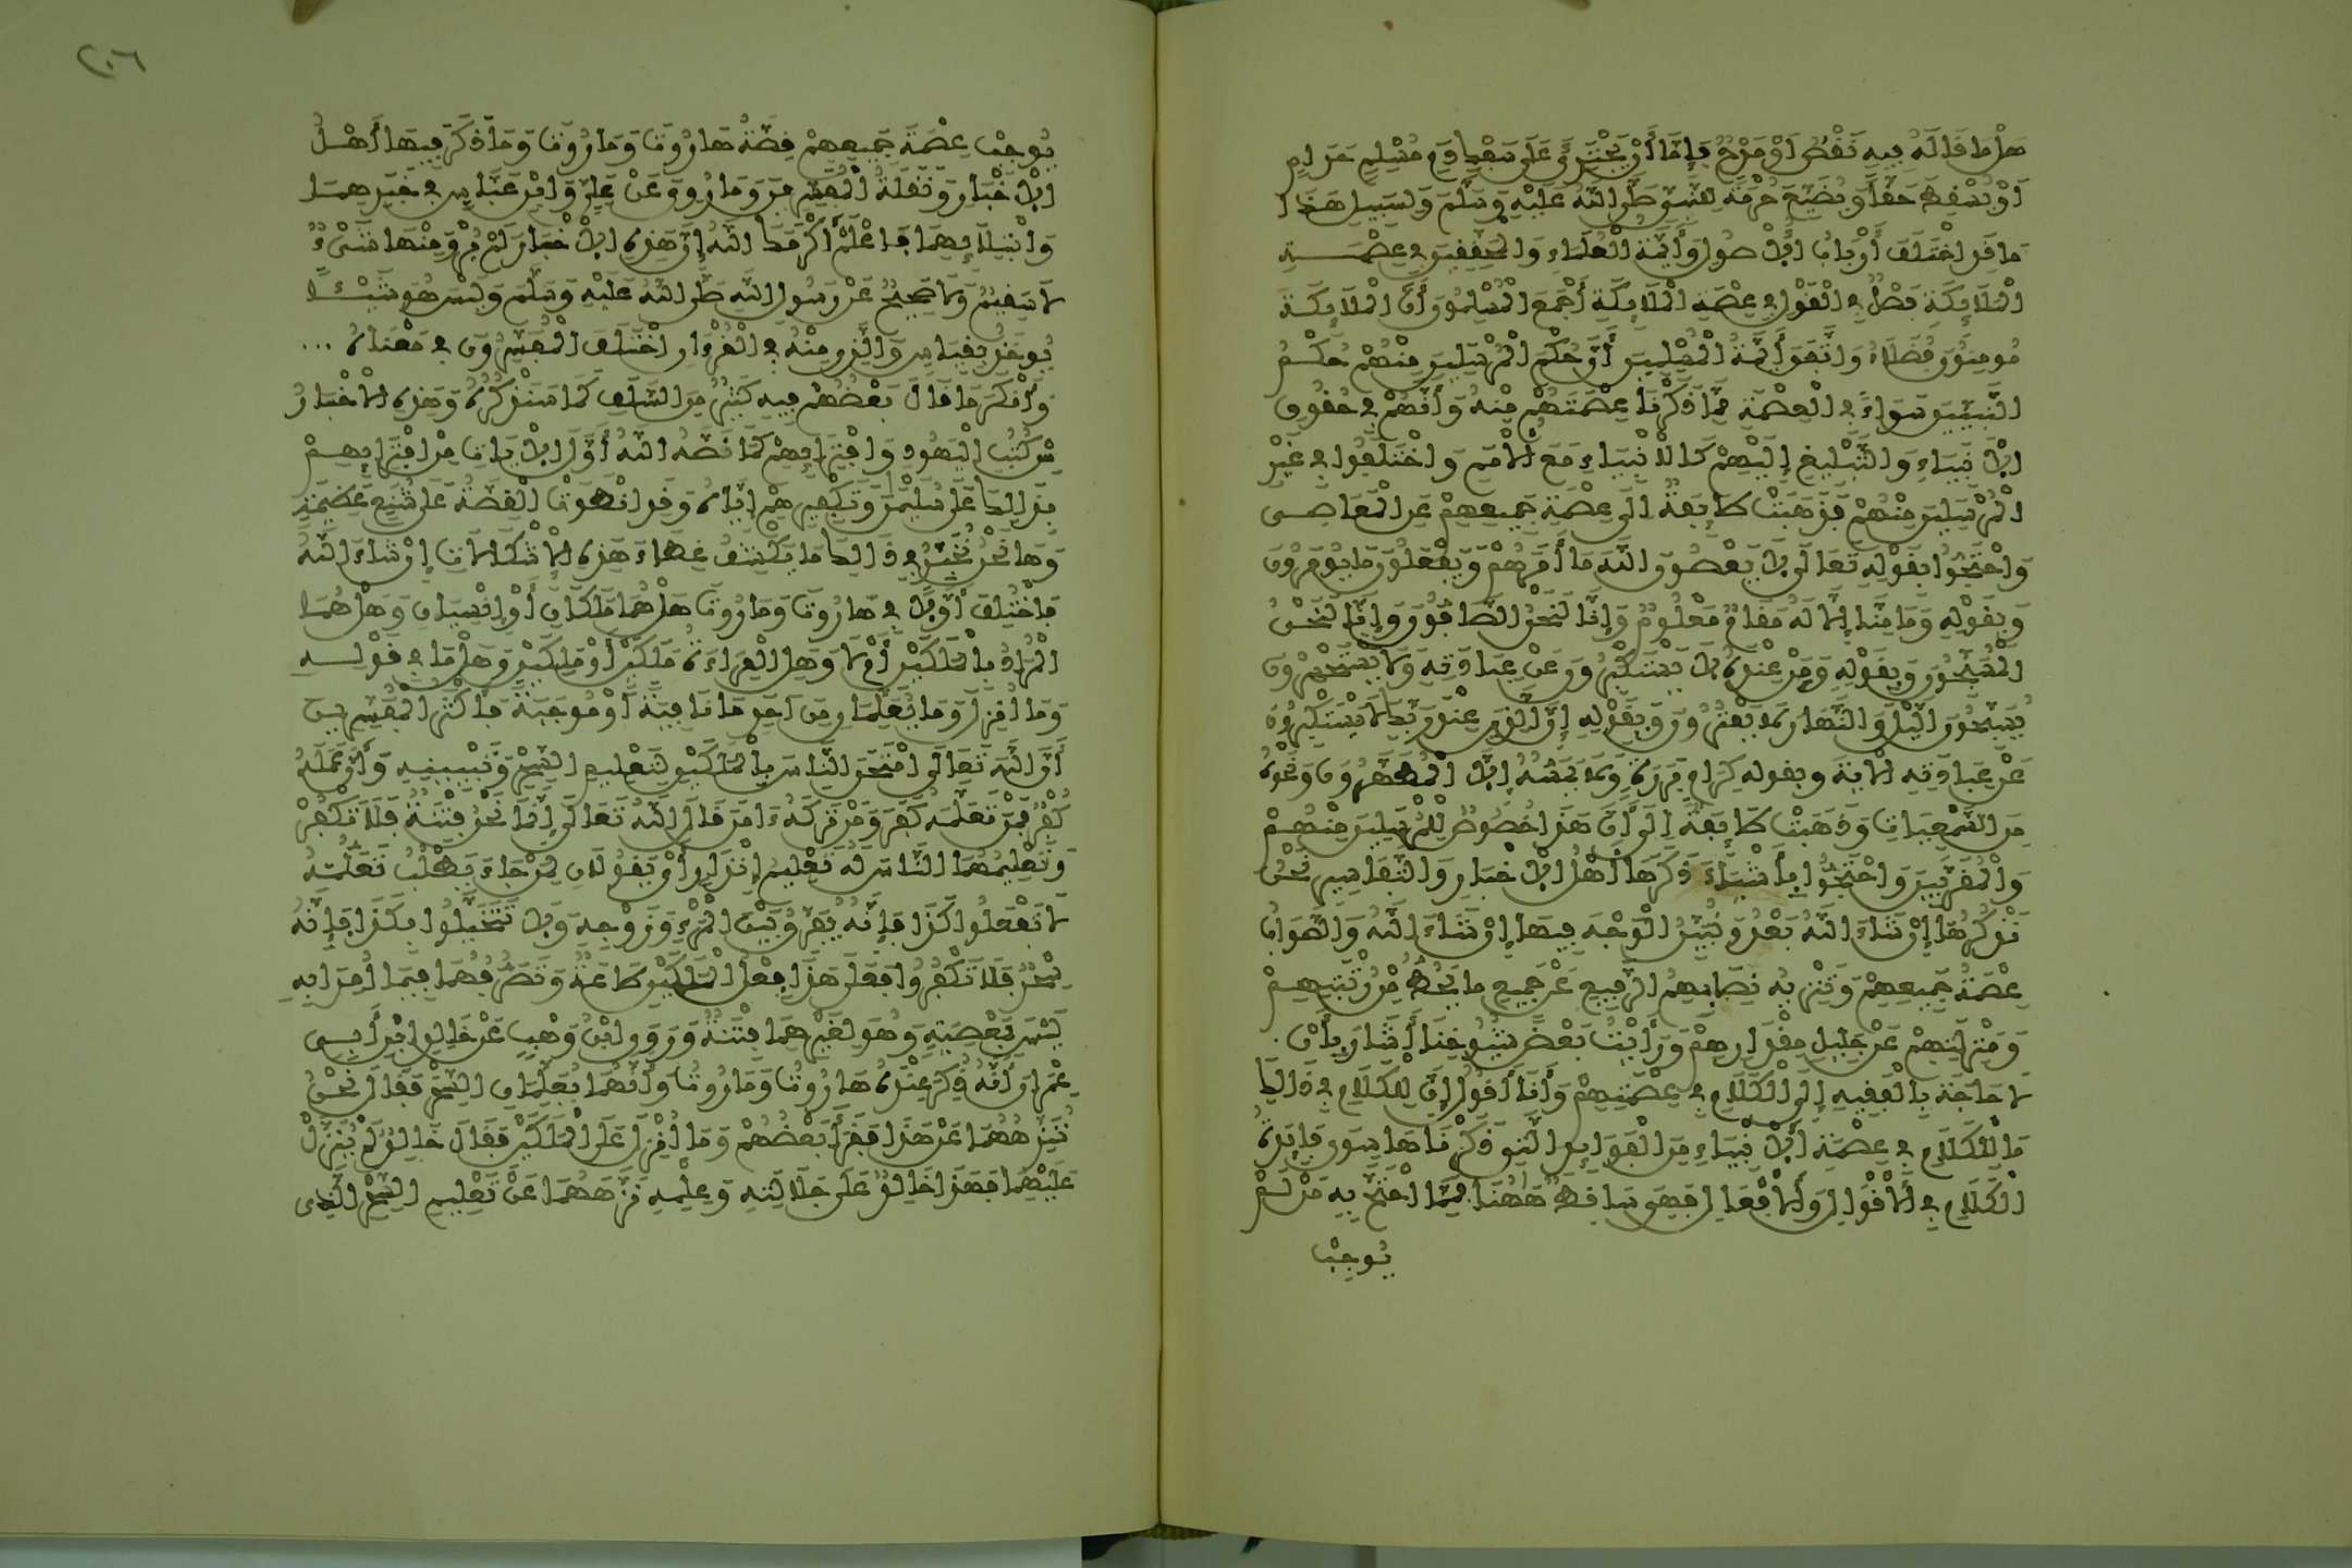 هَلْ مَا قَالَهُ فِيهِ نَقْصٌ أَوْ مَدْحٌ فَإِمَّا أَنْ يَجْتَرِئَ عَلَى سَفْكِ دَمِ مُسْلِمٍ حَرَامٍ
أَوْ يُسْقِطَ حَقًّا وَيُضَيِّعَ حُرْمَةً لِلنَّبِيِّ صَلَّى اللَّهُ عَلَيْهِ وَسَلَّمَ وَلِسَبِيلِ هَذَا
مَا قَدِ اخْتَلَفَ أَرْبَابُ الْأُصُولِ وَأَئِمَّةُ الْعُلَمَاءِ وَالْمُحَقِّقِينَ فِي عِصْمَـــةِ
الْمَلَائِكَةِ فَصْلٌ فِي الْقَوْلِ فِي عِصْمَةِ الْمَلَائِكَةِ أَجْمَعَ الْمُسْلِمُونَ أَنَّ الْمَلَائِكَةَ
مُومِنُونَ فُضَلَاءُ وَاتَّفَقَ أَئِمَّةُ الْمُسْلِمِينَ أَنَّ حُكْمَ الْمُرْسَلِينَ مِنْهُمْ حُكْــمُ
النَّبِيِّينَ سَوَاءً فِي الْعِصْمَةِ مِمَّا ذَكَرْنَا عِصْمَتَهُمْ مِنْهُ وَأَنَّهُمْ فِي حُقُوقِ
الْأَنْبِيَاءِ وَالتَّبْلِيغِ إِلَيْهِمْ كَالْأَنْبِيَاءِ مَعَ الْأُمَمِ وَاخْتَلَفُوا فِي غَيْرِ
الْمُرْسَلِينَ مِنْهُمْ فَذَهَبَتْ طَائِفَةٌ إِلَى عِصْمَةِ جَمِيعِهِمْ عَنِ الْمَعَاصِـي
وَاحْتَجُّوا بِقَوْلِهِ تَعَالَى لَا يَعْصُونَ اللَّهَ مَا أَمَرَهُمْ وَيَفْعَلُونَ مَا يُومَرُونَ
وَبِقَوْلِهِ وَمَا مِنَّا إِلَّا لَهُ مَقَامٌ مَعْلُومٌ وَإِنَّا لَنَحْنُ الصَّافُّونَ وَإِنَّا لَنَحْــنُ
الْمُسَبِّحُونَ وَبِقَوْلِهِ وَمَنْ عِنْدَهُ لَا يَسْتَكْبِرُونَ عَنْ عِبَادَتِهِ وَلَا يَسْتَحْسِرُونَ
يُسَبِّحُونَ اللَّيْلَ وَالنَّهَارَ لَا يَفْتُرُونَ وَبِقَوْلِهِ إِنَّ الَّذِينَ عِنْدَ رَبِّكَ لَا يَسْتَكْبِرُونَ
عَنْ عِبَادَتِهِ الْآيَةَ وبقوله كِرَامٍ بَرَرَةٍ وَلَا يَمَسُّهُ إِلَّا الْمُطَهَّرُونَ وَنَحْوِهُ
مِنَ السَّمْعِيَّاتِ وَذَهَبَتْ طَائِفَةٌ إِلَى أَنَّ هَذَا خُصُوصٌ لِلْمُرْسَلِينَ مِنْهُــمْ
وَالْمُقَرَّبِينَ وَاحْتَجُّوا بِأَشْيَاءَ ذَكَرَهَا أَهْلُ الْأَخْبَارِ وَالتَّفَاسِيرِ نَحْنُ
نَذْكُرُهَا إِنْ شَاءَ اللَّهُ بَعْدُ وَنُبَيِّنُ الْوَجْهَ فِيهَا إِنْ شَاءَ اللَّهُ وَالصَّوَابُ
عِصْمَةُ جَمِيعِهِمْ وَتَنْزِيهُ نِصَابِهِمُ الرَّفِيعِ عَنْ جَمِيعِ مَا يَحُطُّ مِنْ رُتْبَتِهِمْ
وَمَنْزِلَتِهِمْ عَنْ جَلِيلِ مِقْدَارِهِمْ وَرَأَيْتُ بَعْضَ شُيُوخِنَا أَشَارَ بِأَنْ.
لَا حَاجَةَ بِالْفَقِيهِ إِلَى الْكَلَامِ فِي عِصْمَتِهِمْ وَأَنَا أَقُولُ إِنَّ لِلْكَلَامِ فِي ذَلِكَ
مَا لِلْكَلَامِ فِي عِصْمَةِ الْأَنْبِيَاءِ مِنَ الْفَوَائِدِ الَّتِي ذَكَرْنَاهَا سِوَى فَائِدَةِ
الْكَلَامِ فِي الْأَقْوَالِ وَالْأَفْعَالِ فَهِيَ سَاقِطَةٌ هَاهُنَا فَمِمَّا احْتَجَّ بِهِ مَنْ لَمْ
يُوجِبْ
٢٠٦
يُوجِبْ عِصْمَةَ جَمِيعِهِمْ قِصَّةُ هَارُوتَ وَمَارُوتَ وَمَا ذَكَرَ فِيهَا أَهْـلُ
الْأَخْبَارِ وَنَقَلَةُ الْمُفَسِّرِينَ وَمَا رُوِيَ عَنْ عَلِيٍّ وَابْنِ عَبَّاسٍ فِي خَبَرِهِمَا
وَابْتِلَائِهِمَا فَاعْلَمْ أَكْرَمَكَ اللَّهُ إِنَّ هَذِهِ الْأَخْبَارَ لَمْ يُرْوَ مِنْهَا شَيْءٌ
لَا سَقِيمٌ وَلَا صَحِيحٌ عَنْ رَسُولِ اللَّهِ صَلَّى اللَّهُ عَلَيْهِ وَسَلَّمَ وَلَيْسَ هُوَ شَيْـئًا
يُوخَذُ بِقِيَاسٍ وَالَّذِي مِنْهُ فِي الْقُرْءَانِ اخْتَلَفَ الْمُفَسِّرُونَ فِي مَعْنَاهُ ...
وَأَنْكَرَ مَا قَالَ بَعْضُهُمْ فِيهِ كَثِيرٌ مِنَ السَّلَفِ كَمَا سَنَذْكُرُهُ وَهَذِهِ الْأَخْبَارُ
مِنْ كُتُبِ الْيَهُودِ وَافْتِرَائِهِمْ كَمَا نَصَّهُ اللَّهُ أَوَّلَ الْآيَاتِ مِنِ افْتِرَائِهِــمْ
بِذَلِكَ عَلَى سُلَيْمَنَ وَتَكْفِيرِهِمْ إِيَّاهُ وَقَدِ انْطَوَتِ الْقِصَّةُ عَلَى شُنَعٍ عَظِيمَةٍ
وَهَا نَحْنُ نُحَبِّرُ فِي ذَلِكَ مَا يَكْشِفُ غِطَاءَ هَذِهِ الْإِشْكَالَاتِ إِنْ شَاءَ اللَّهُ
فَاخْتُلِفَ أَوَّلًا فِي هَارُوتَ وَمَارُوتَ هَلْ هُمَا مَلَكَانِ أَوْ إِنْسِيَّانِ وَهَلْ هُمَا
الْمُرَادُ بِالْمَلَكَيْنِ أَمْ لَا وَهَلِ الْقِرَاءَةُ مَلَكَيْنِ أَوْ مَلِكَيْنِ وَهَلْ مَا فِي قَوْلِــهِ
وَمَا أُنْزِلَ وَمَا يُعَلِّمَانِ مِنْ أَحَدٍ مَا نَافِيَةٌ أَوْ مُوجَبَةٌ فَأَكْثَرُ الْمُفَسِّرِيـنَ
أَنَّ اللَّهَ تَعَالَى امْتَحَنَ النَّاسَ بِالْمَلَكَيْنِ لِتَعْلِيمِ السِّحْرِ وَتَبْيِينِهِ وَأَنَّ عَمَلَهُ
كُفْرٌ فَمَنْ تَعَلَّمَهُ كَفَرَ وَمَنْ تَرَكَهُ ءَامَنَ قَالَ اللَّهُ تَعَالَى إِنَّمَا نَحْنُ فِتْنَةٌ فَلَا تَكْفُرْ
وَتَعْلِيمُهُمَا النَّاسَ لَهُ تَعْلِيمُ إِنْذَارٍ أَيْ يَقُولَانِ لِمَنْ جَاءَ يَطْلُبُ تَعَلُّمَهُ
لَا تَفْعَلُوا كَذَا فَإِنَّهُ يُفَرِّقُ بَيْنَ الْمَرْءِ وَزَوْجِهِ وَلَا تَتَخَيَّلُوا بِكَذَا فَإِنَّهُ
سِحْرٌ فَلَا تَكْفُرُوا فَعَلَى هَذَا فِعْلُ الْمَلَكَيْنِ طَاعَةٌ وَتَصَرُّفُهُمَا فِيمَا أُمِرَا بِهِ
لَيْسَ بِمَعْصِيَةٍ وَهُوَ لِغَيْرِهِمَا فِتْنَةٌ وَرَوَى ابْنُ وَهْبٍ عَنْ خَالِدِ بْنِ أَبِـي
عِمْرَانَ أَنَّهُ ذُكِرَ عِنْدَهُ هَارُوتُ وَمَارُوتُ وَأَنَّهُمَا يُعَلِّمَانِ السِّحْرَ فَقَالَ نَحْــنُ
نُنَزِّهُهُمَا عَنْ هَذَا فَقَرَأَ بَعْضُهُمْ وَمَا أُنْزِلَ عَلَى الْمَلَكَيْنِ فَقَالَ خَالِدٌ لَمْ يُنْزَلْ
عَلَيْهِمَا فَهَذَا خَالِدٌ عَلَى جَلَالَتِهِ وَعِلْمِهِ نَزَّهَهُمَا عَنْ تَعْلِيمِ السِّحْرِ الَّذِي